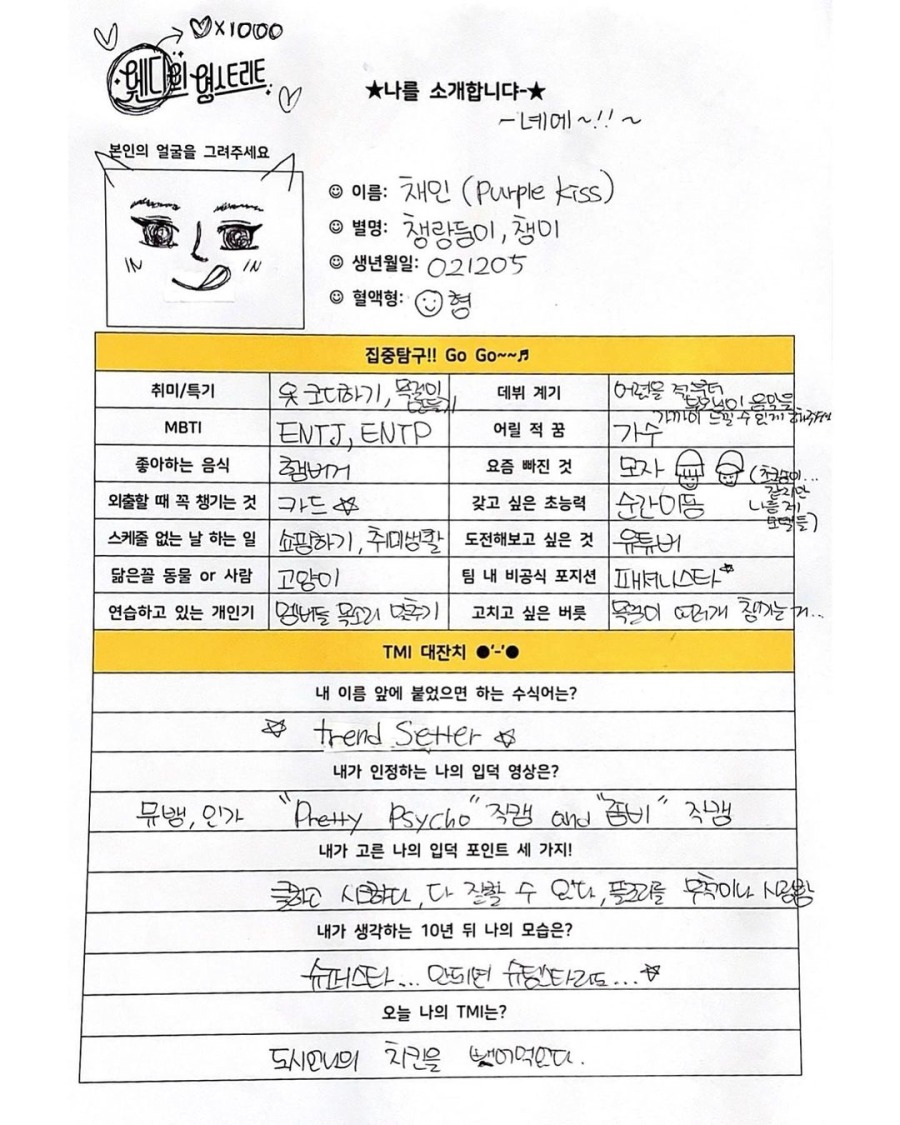 ♡×1000
웬디의 영스트리트
★나를 소개합니다-★
-네에~!!~
본인의 얼굴을 그려주세요
이름: 채인 (Purple kiss)
별명: 챙랑둥이, 챙미
생년월일: 021205
혈액형: ☺형
집중탐구!! Go Go~~♬
취미/특기 옷 코디하기, 목걸이 만들기
데뷔 계기 어렸을 적부터 부모님이 음악을 가까이 느낄 수 있게 해주셔서
MBTI ENTJ, ENTP
어릴 적 꿈 가수
좋아하는 음식 햄버거
요즘 빠진 것 모자 (초코송이... 같지만 나름 제 모델들)
외출할 때 꼭 챙기는 것 카드☆
갖고 싶은 초능력 순간이동
스케줄 없는 날 하는 일 쇼핑하기, 취미생활
도전해보고 싶은 것 유튜버
닮은꼴 동물 or 사람 고양이
팀 내 비공식 포지션 패셔니스타☆
연습하고 있는 개인기 멤버들 목소리 맞추기
고치고 싶은 버릇 목걸이 여러개 챙기는 거...
TMI 대잔치 ●'-'●
내 이름 앞에 붙었으면 하는 수식어는?
☆ trend Setter ☆
내가 인정하는 나의 입덕 영상은?
뮤뱅, 인가 "Pretty Psycho" 직캠 and "좀비" 직캠
내가 고른 나의 입덕 포인트 세 가지!
쿨하고 시크하다, 다 잘할 수 있다, 플로리를 무척이나 사랑함
내가 생각하는 10년 뒤 나의 모습은?
슈퍼스타... 안되면 슈팅스타라도...☆
오늘 나의 TMI는?
도시언니의 치킨을 뺏어먹었다.